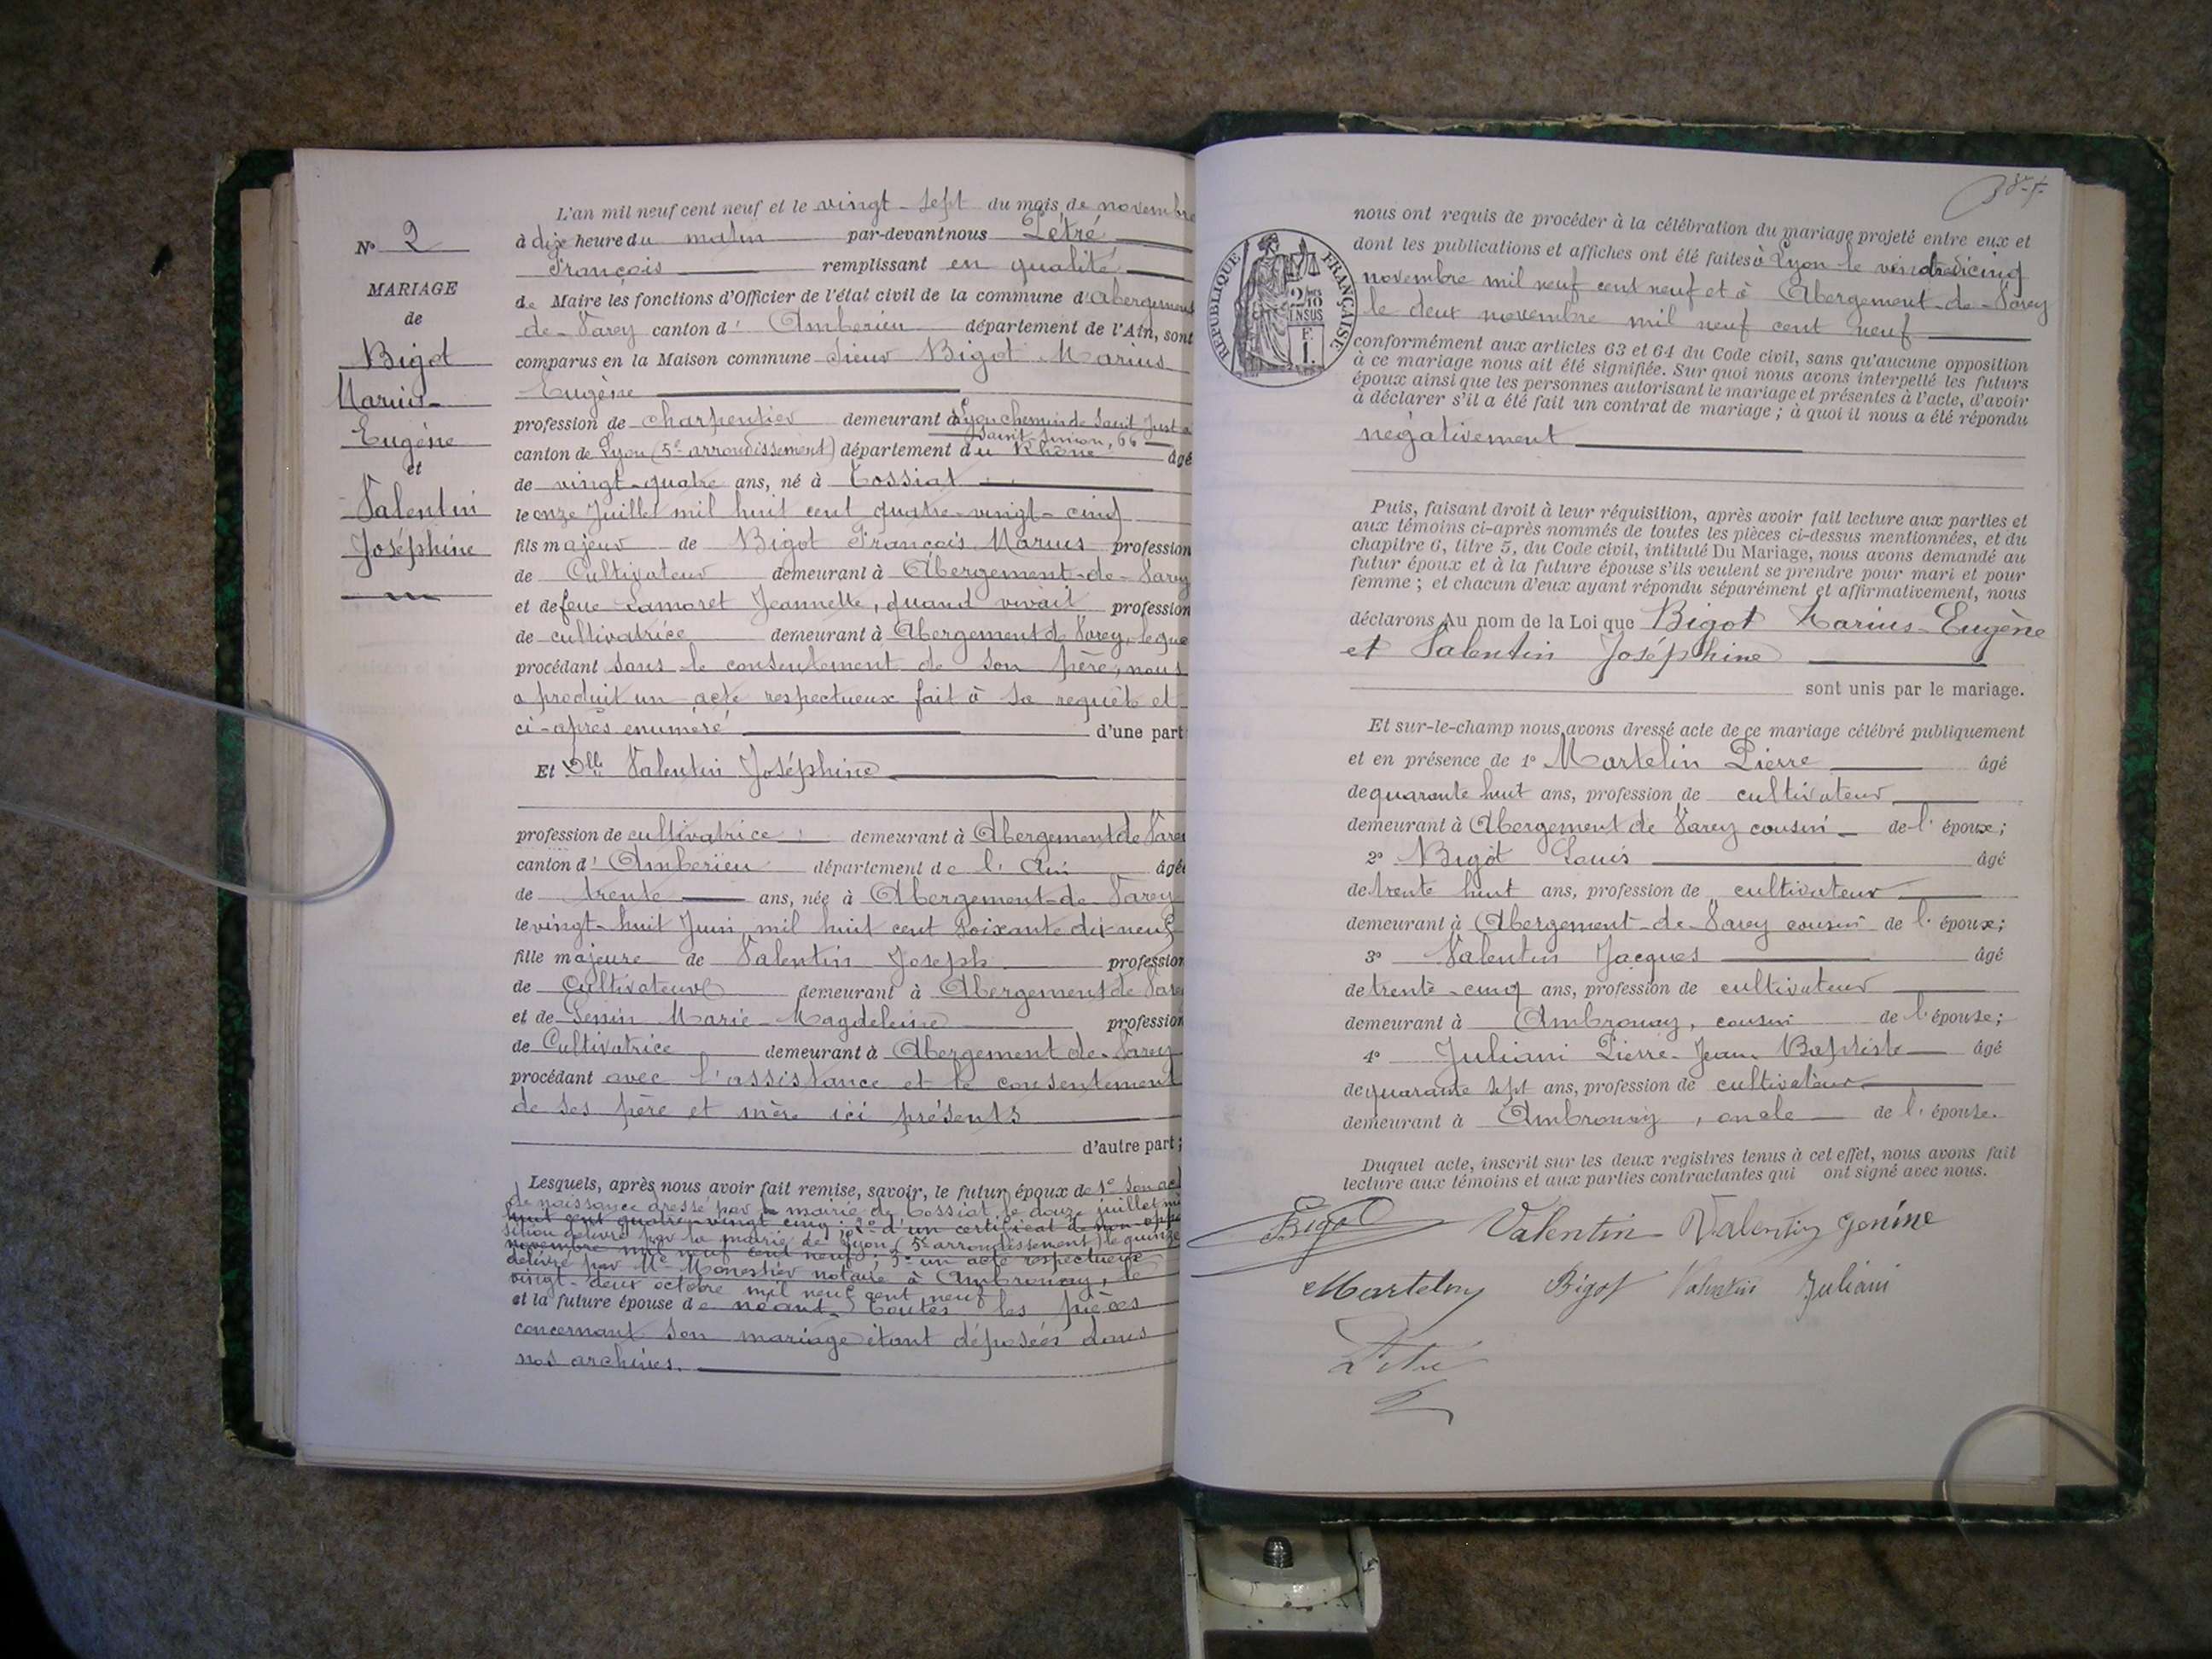 L'an mil neuf cent neuf et le vingt-sept du mois de novembre
N° 2
à dix heure du matin par-devant nous Létré
François remplissant en qualité
MARIAGE
de Maire les fonctions d'Officier de l'état civil de la commune d'Abergement
de
de-Varey canton d' Amberieu département de l'Ain, sont
Bigot
comparus en la Maison commune Sieur Bigot Marius
Marius-
Eugène
profession de charpentier demeurant à Lyon chemin de Saint Just à
Saint-Simon, 66
Eugène
canton de Lyon (5e arrondissement) département du Rhône âgé
et
de vingt-quatre ans, né à Tossiat
Valentin
le onze Juillet mil huit cent quatre-vingt-cinq
Joséphine
fils majeur de Bigot François Marius profession
de Cultivateur demeurant à Abergement-de-Varey
et de feue Lamoret Jeannette, quand vivait profession
de cultivatrice demeurant à Abergement de Varey, leque
procédant sans le consentement de son père, nous
a produit un acte respectueux fait à sa requête et
ci-après enuméré d'une part
Et Dlle Valentin Joséphine
profession de cultivatrice demeurant à Abergement de Varey
canton d' Amberieu département de l' Ain âgée
de trente ans, née à Abergement-de-Varey
le vingt-huit Juin mil huit cent soixante dix neuf
fille majeure de Valentin Joseph profession
de Cultivateur demeurant à Abergement de Varey
et de Genin Marie-Magdeleine profession
de Cultivatrice demeurant à Abergement de-Varey
procédant avec l'assistance et le consentement
de ses père et mère ici présents
d'autre part;
Lesquels, après nous avoir fait remise, savoir, le futur époux de 1° son act
de naissance dressé par la mairie de Tossiat le douze juillet mil
huit cent quatre-vingt cinq; 2° d'un certificat de non-oppo
sition délivré par la mairie de Lyon (5e arrondissement) le quinze
novembre mil neuf cent neuf; 3° un acte respectueux
délivré par Me Monestier notaire à Ambronay, le
vingt-deux octobre mil neuf cent neuf
et la future épouse de néant. Toutes les pièces
concernant son mariage étant déposées dans
nos archives.
nous ont requis de procéder à la célébration du mariage projeté entre eux et
dont les publications et affiches ont été faites à Lyon le
novembre mil neuf cent neuf et à Abergement-de-Varey
le deux novembre mil neuf cent neuf
RÉPUBLIQUE FRANÇAISE
2/10 EN SUS
F. 1.
conformément aux articles 63 et 64 du Code civil, sans qu'aucune opposition
à ce mariage nous ait été signifiée. Sur quoi nous avons interpellé les futurs
époux ainsi que les personnes autorisant le mariage et présentes à l'acte, d'avoir
à déclarer s'il a été fait un contrat de mariage; à quoi il nous a été répondu
négativement
Puis, faisant droit à leur réquisition, après avoir fait lecture aux parties et
aux témoins ci-après nommés de toutes les pièces ci-dessus mentionnées, et du
chapitre 6, titre 5, du Code civil, intitulé Du Mariage, nous avons demandé au
futur époux et à la future épouse s'ils veulent se prendre pour mari et pour
femme; et chacun d'eux ayant répondu séparément et affirmativement, nous
déclarons Au nom de la Loi que Bigot Marius-Eugène
et Valentin Joséphine
sont unis par le mariage.
Et sur-le-champ nous avons dressé acte de ce mariage célébré publiquement
et en présence de 1° Martelin Pierre âgé
de quarante huit ans, profession de cultivateur
demeurant à Abergement de Varey cousin de l' époux;
2° Bigot Louis âgé
de trente huit ans, profession de cultivateur
demeurant à Abergement-de-Varey cousin de l' époux;
3° Valentin Jacques âgé
de trente-cinq ans, profession de cultivateur
demeurant à Ambronay, cousin de l'épouse;
4° Juliani Pierre-Jean Baptiste âgé
de quarante sept ans, profession de cultivateur
demeurant à Ambronay, oncle de l' épouse.
Duquel acte, inscrit sur les deux registres tenus à cet effet, nous avons fait
lecture aux témoins et aux parties contractantes qui ont signé avec nous.
Bigot Valentin Valentin Genine
Martelin Bigot Valentin Juliani
Létré